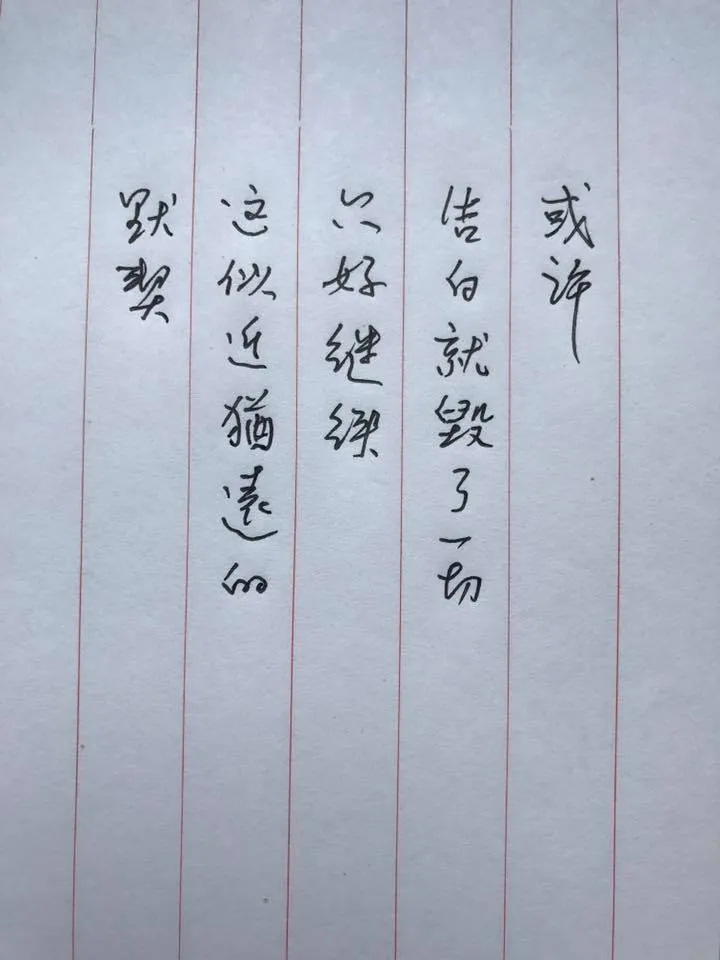 或许
告白就毁了一切
只好继续
这似近猶遠的
默契